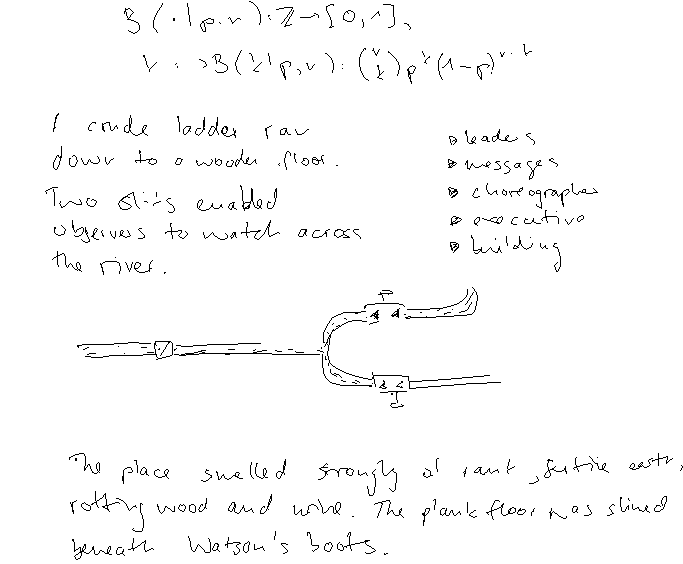 B(·|p,n): Z→[0,1],
k ↦ B(k|p,n): (n k) p^k (1-p)^n-k
A crude ladder ran
down to a wooden floor.
Two slits enabled
observers to watch across
the river.
leaders
messages
choreographer
executive
building
The place smelled strongly of rank, fertile earth,
rotting wood and urine. The plank floor was slimed
beneath Watson's boots.